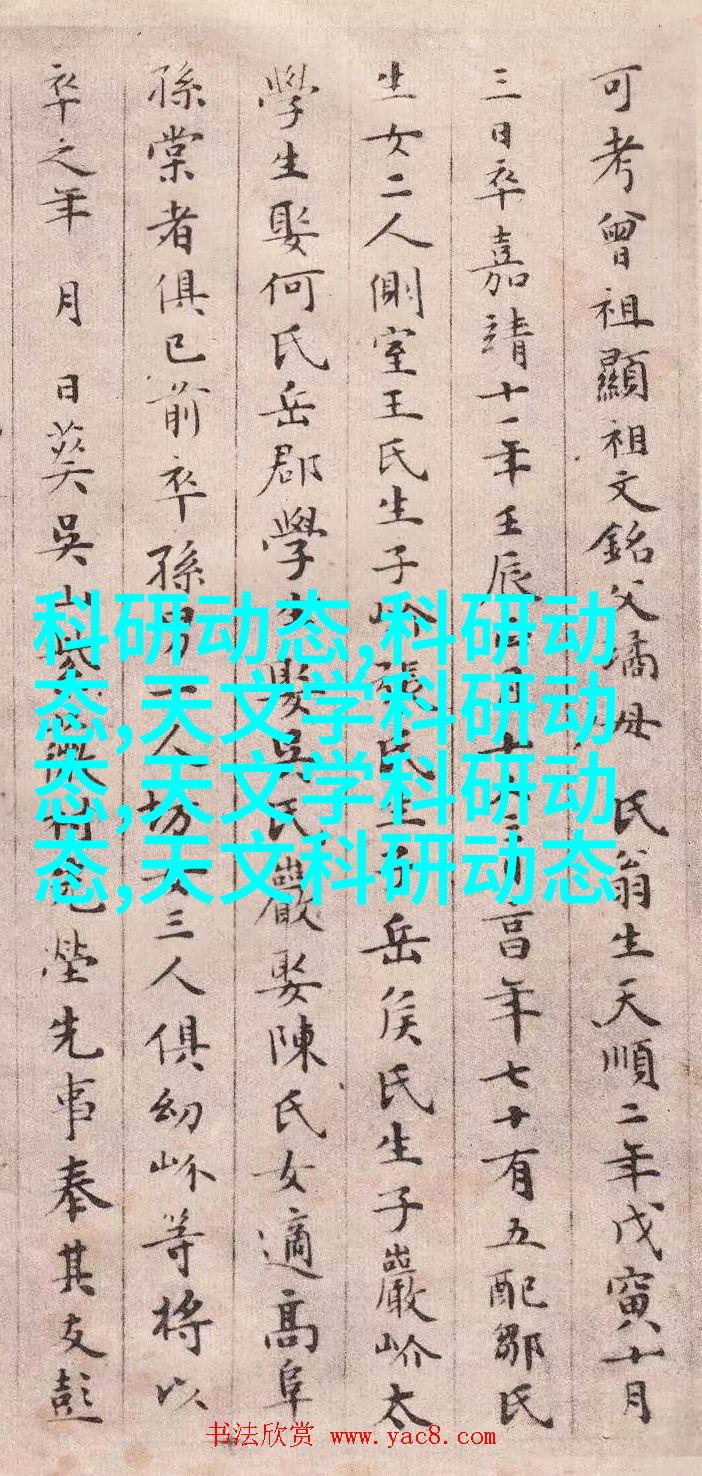 可考曾祖顯祖文銘父璚母 氏翁生天順二年戊寅十月
三日卒嘉靖十一年壬辰 月十 日 年七十有五配鄒氏
生女二人側室王氏生子岎張氏生 岳侯氏生子巖岎太
學生娶何氏岳郡學生娶吳氏巖娶陳氏女適高阜
孫棠者俱已前卒孫男一人坊女三人俱幼岎等將以
卒之年 月 日葬吳山 先 先事奉其友彭
科研动态,科研动
态,天文学科研动
态,天文学科研动
态,天文科研动态
书法欣赏 www.yac8.com